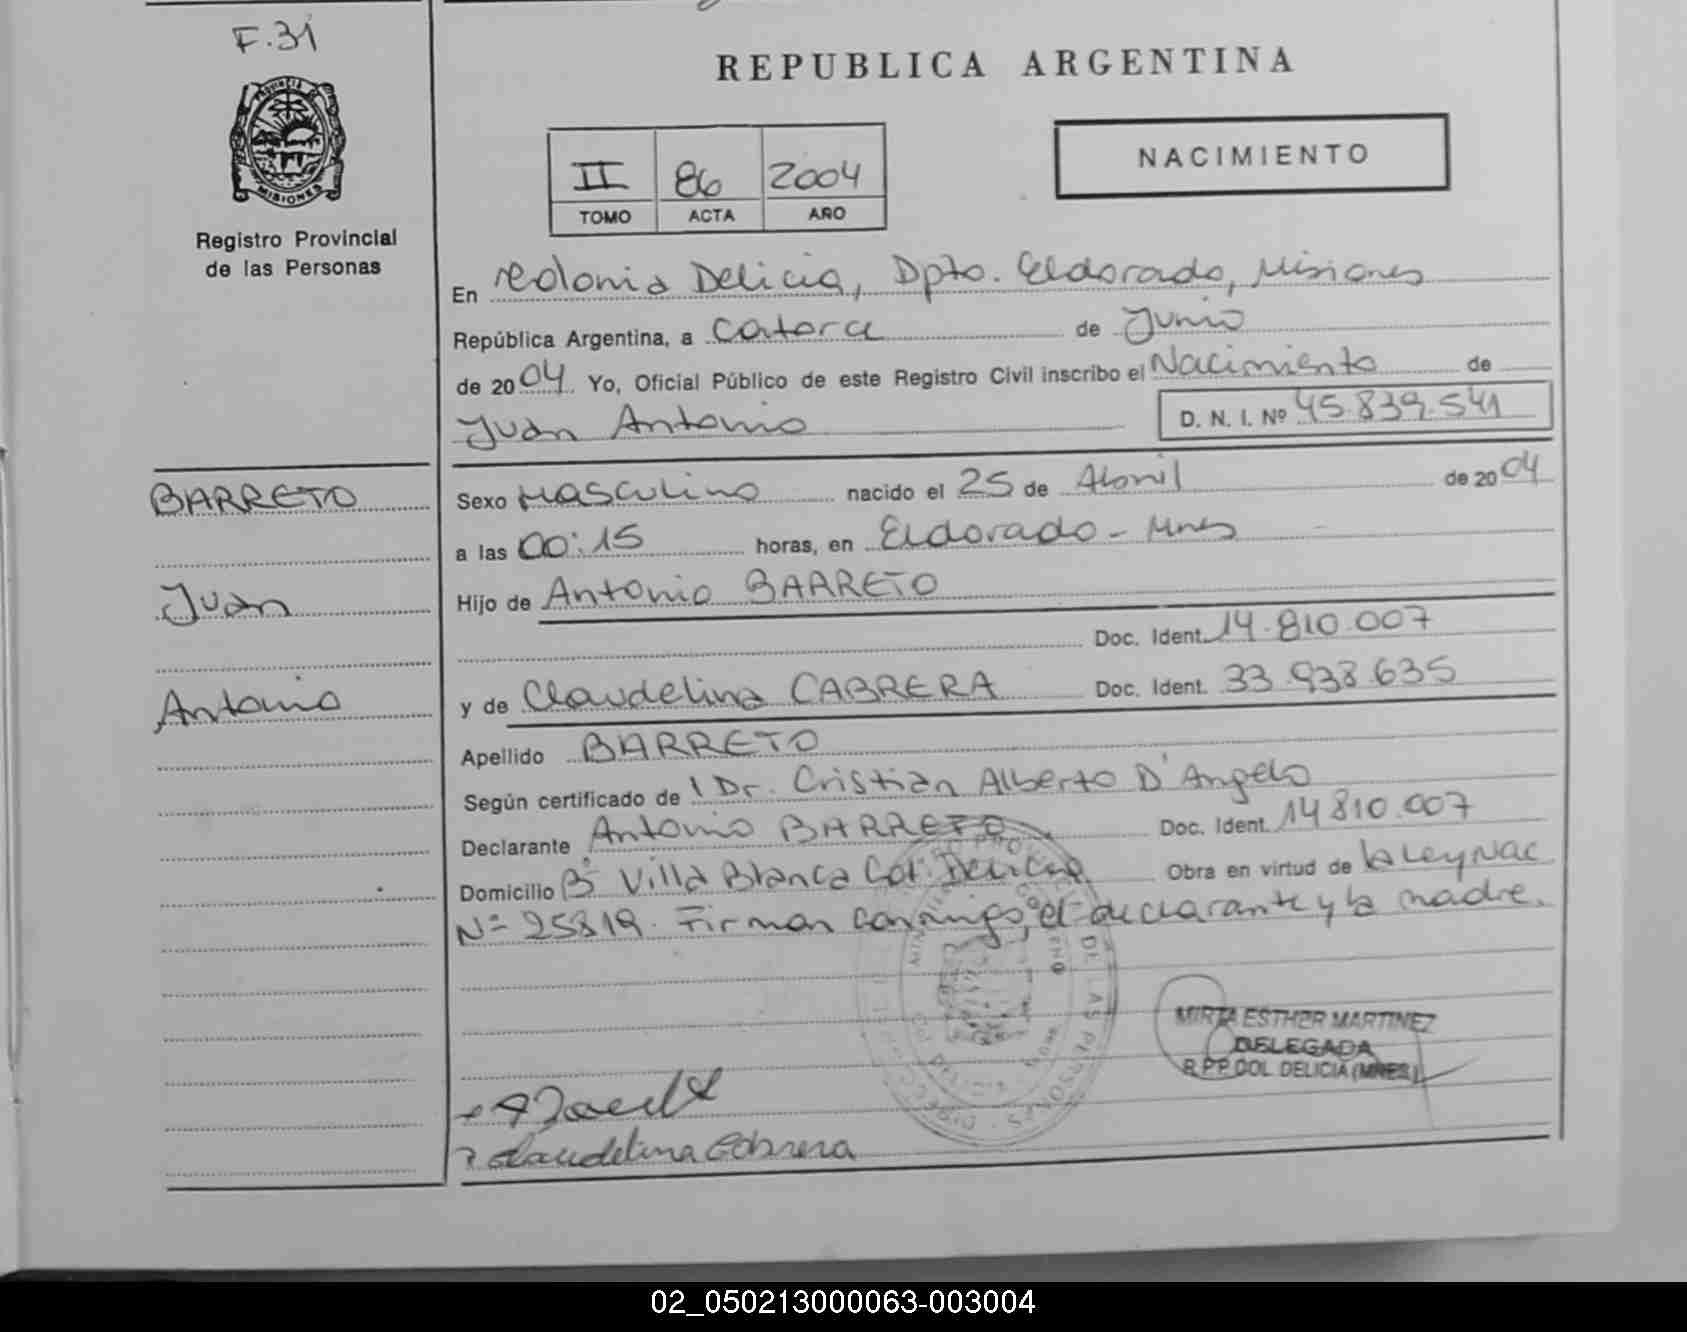 F.31
PROVINCIA DE
MISIONES
Registro Provincial
de las Personas
REPUBLICA ARGENTINA
II 86 2004
TOMO ACTA AÑO
NACIMIENTO
En Colonia Delicia, Dpto. Eldorado, Misiones
República Argentina, a Catorce de Junio
de 2004 Yo, Oficial Público de este Registro Civil inscribo el Nacimiento de
Juan Antonio D. N. I. Nº 45.839.541
BARRETO
Juan
Antonio
Sexo Masculino nacido el 25 de Abril de 2004
a las 00:15 horas, en Eldorado - Mnes
Hijo de Antonio BARRETO
Doc. Ident. 14.810.007
y de Claudelina CABRERA Doc. Ident. 33.938.635
Apellido BARRETO
Según certificado de Dr. Cristian Alberto D'Angelo
Declarante Antonio BARRETO Doc. Ident. 14810.007
Domicilio Bº Villa Blanca Col. Delicia Obra en virtud de la Ley Nac
Nº 25819. Firman conmigo, el declarante y la madre.
DE LAS PERSONAS
MIRTA ESTHER MARTINEZ
DELEGADA
R.P.P. COL DELICIA (MNES)
Claudelina Cabrera
02_050213000063-003004